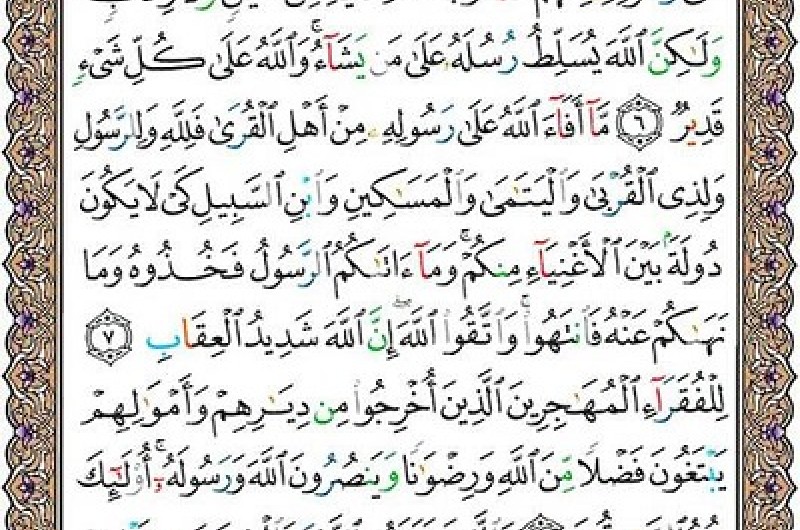 وَلَـٰكِنَّ ٱللَّهَ يُسَلِّطُ رُسُلَهُۥ عَلَىٰ مَن يَشَآءُ ۚ وَٱللَّهُ عَلَىٰ كُلِّ شَىْءٍ
قَدِيرٌ ٦ مَّآ أَفَآءَ ٱللَّهُ عَلَىٰ رَسُولِهِۦ مِنْ أَهْلِ ٱلْقُرَىٰ فَلِلَّهِ وَلِلرَّسُولِ
وَلِذِى ٱلْقُرْبَىٰ وَٱلْيَتَـٰمَىٰ وَٱلْمَسَـٰكِينِ وَٱبْنِ ٱلسَّبِيلِ كَىْ لَا يَكُونَ
دُولَةًۢ بَيْنَ ٱلْأَغْنِيَآءِ مِنكُمْ ۚ وَمَآ ءَاتَىٰكُمُ ٱلرَّسُولُ فَخُذُوهُ وَمَا
نَهَىٰكُمْ عَنْهُ فَٱنتَهُوا۟ ۚ وَٱتَّقُوا۟ ٱللَّهَ ۖ إِنَّ ٱللَّهَ شَدِيدُ ٱلْعِقَابِ ٧
لِلْفُقَرَآءِ ٱلْمُهَـٰجِرِينَ ٱلَّذِينَ أُخْرِجُوا۟ مِن دِيَـٰرِهِمْ وَأَمْوَٰلِهِمْ
يَبْتَغُونَ فَضْلًا مِّنَ ٱللَّهِ وَرِضْوَٰنًا وَيَنصُرُونَ ٱللَّهَ وَرَسُولَهُۥٓ ۚ أُو۟لَـٰٓئِكَ